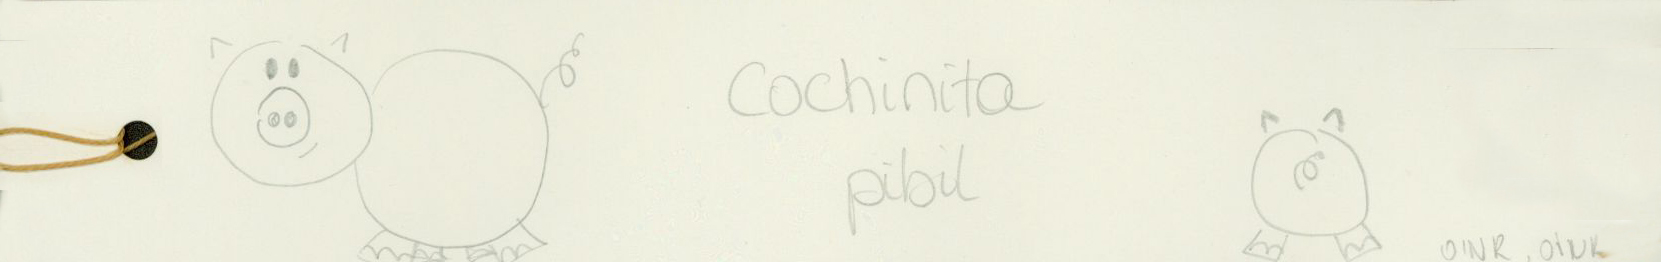 Cochinita
pibil
OINK, OINK